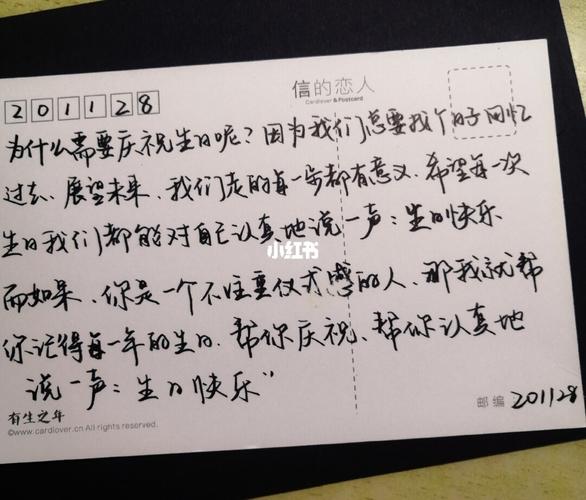 信的恋人
Cardlover & Postcard
201128
为什么需要庆祝生日呢？因为我们总要找个日子回忆
过去、展望未来，我们走的每一步都有意义、希望每一次
生日我们都能对自己认真地说一声：生日快乐
小红书
而如果、你是一个不注重仪式感的人、那我就帮
你记得每一年的生日、帮你庆祝、帮你认真地
说一声：生日快乐”
有生之年
©www.cardlover.cn All rights reserved.
邮编 201128